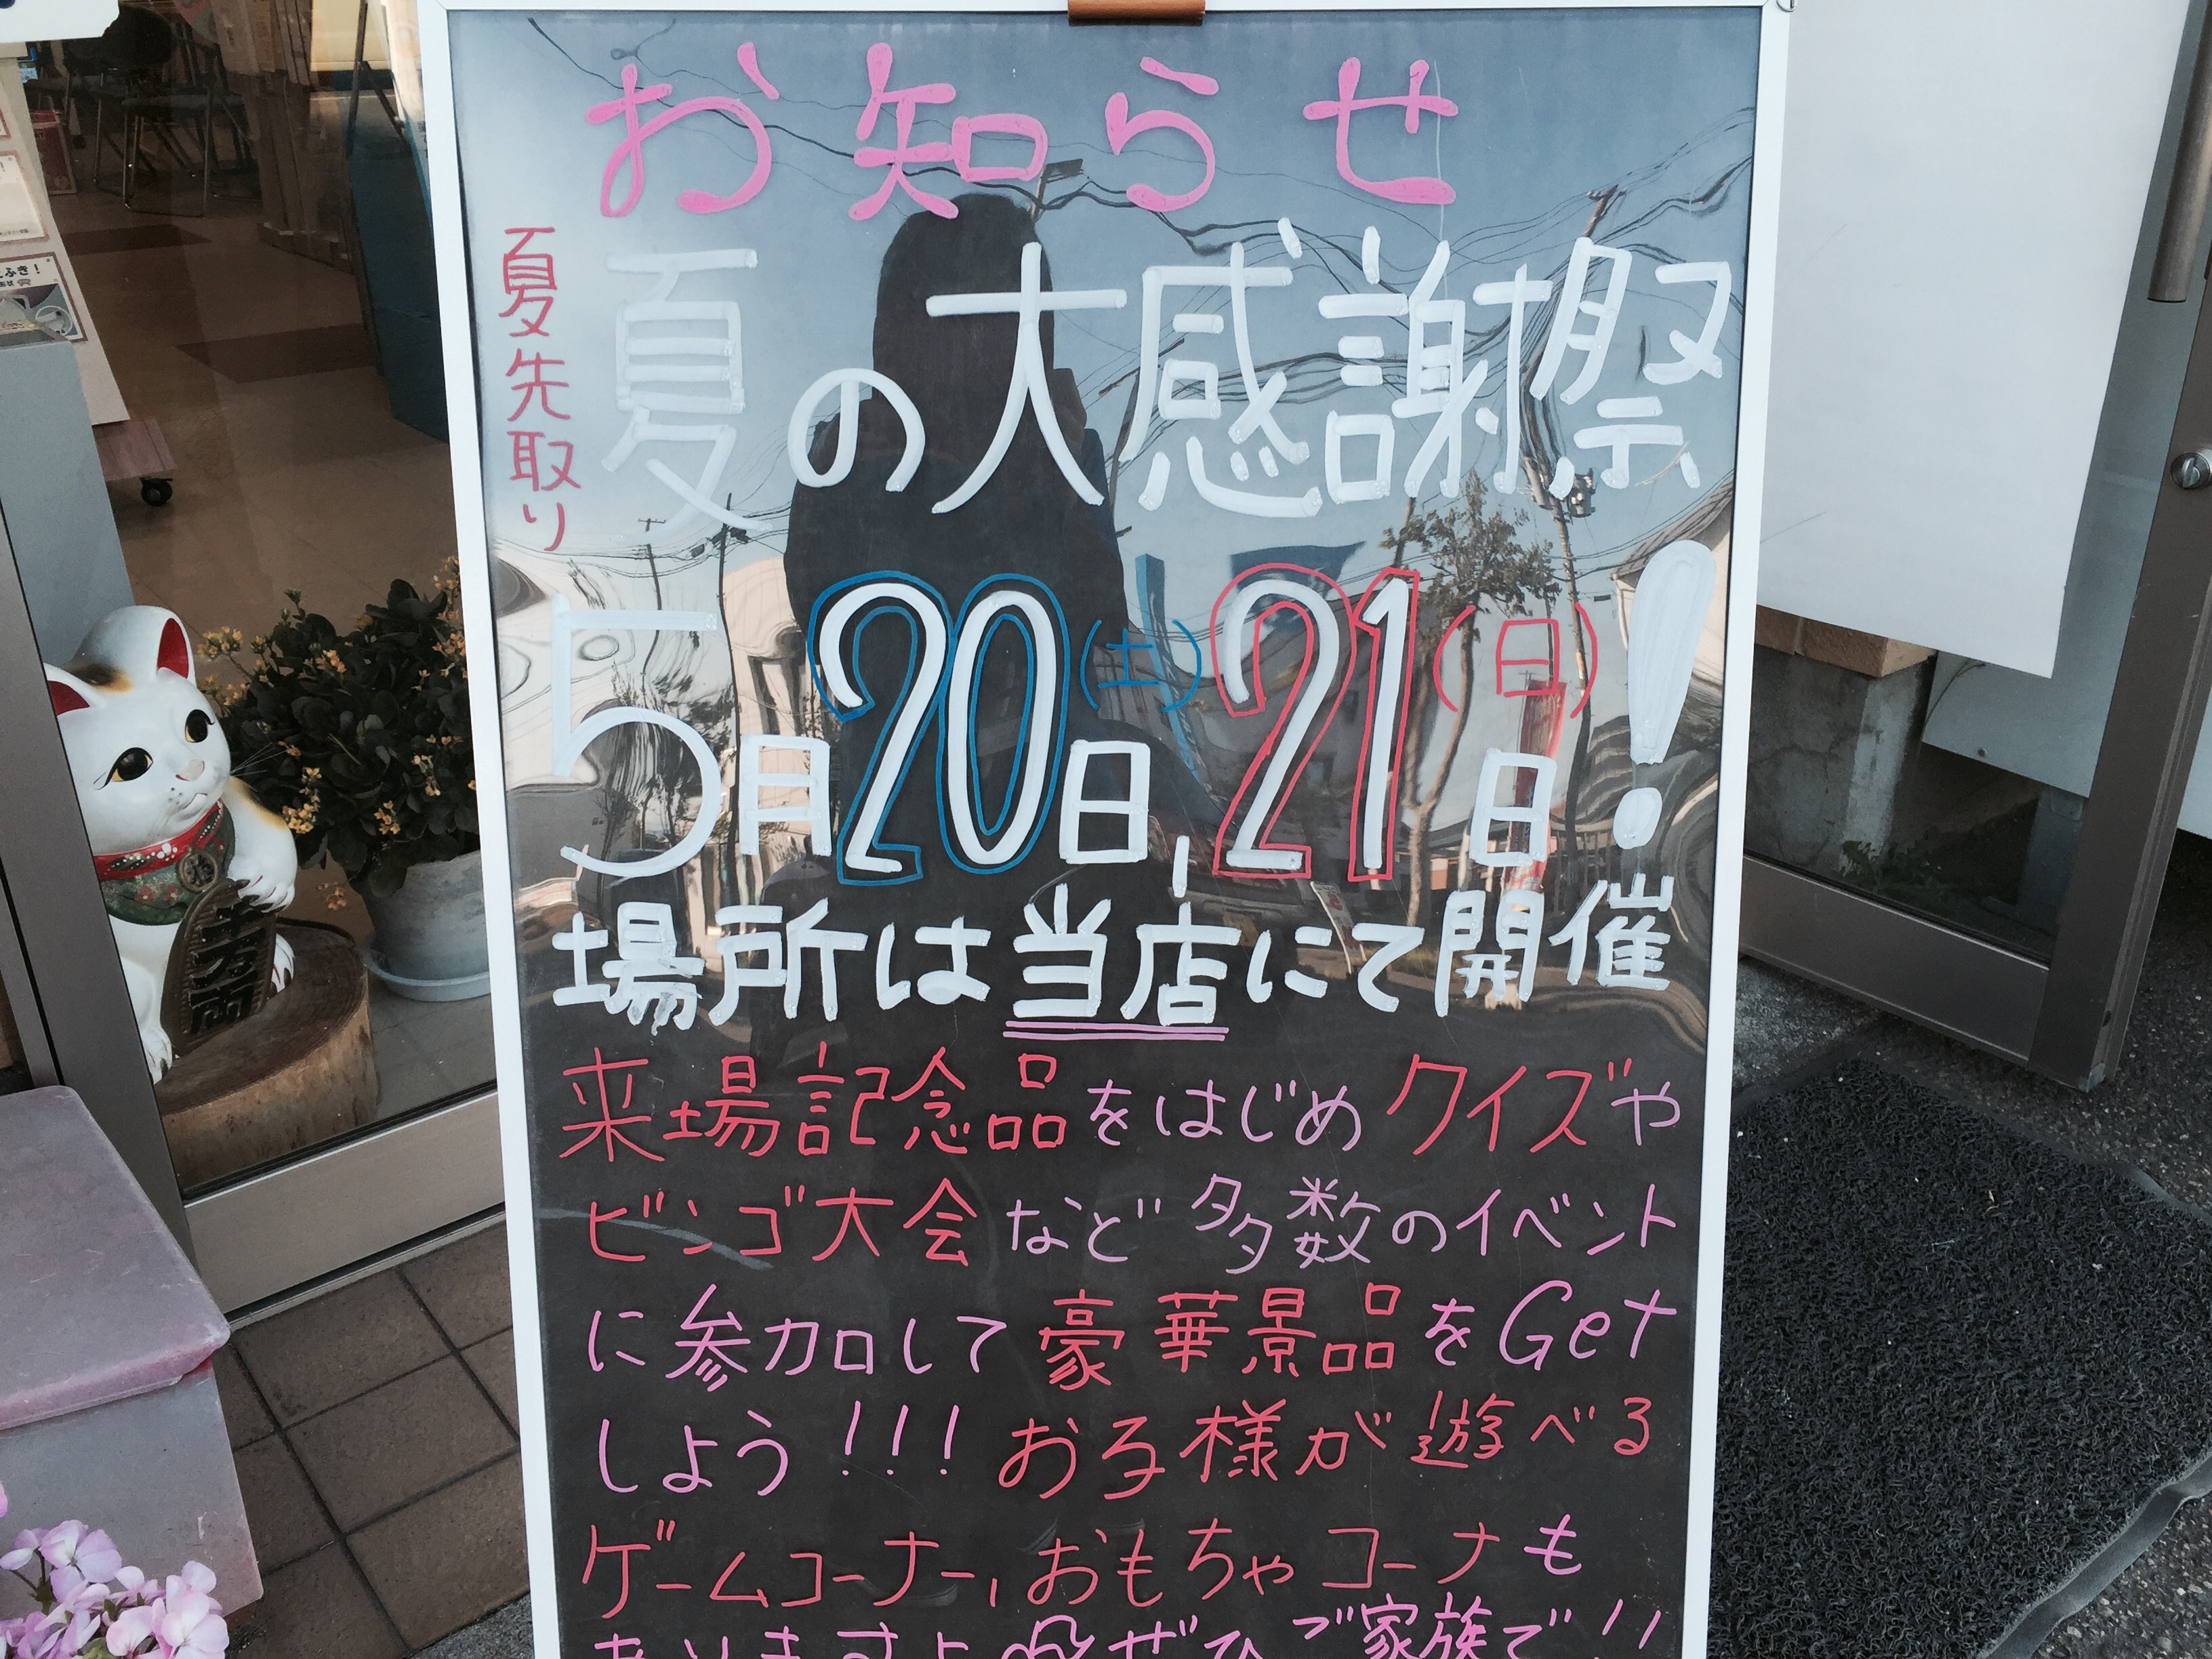 お知らせ
夏先取り
夏の大感謝祭
5月20日(土),21日(日)!
場所は当店にて開催
来場記念品をはじめクイズや
ビンゴ大会など多数のイベント
に参加して豪華景品をGet
しよう!!!お子様が遊べる
ゲームコーナー,おもちゃコーナも
ありますよ ぜひご家族で!!